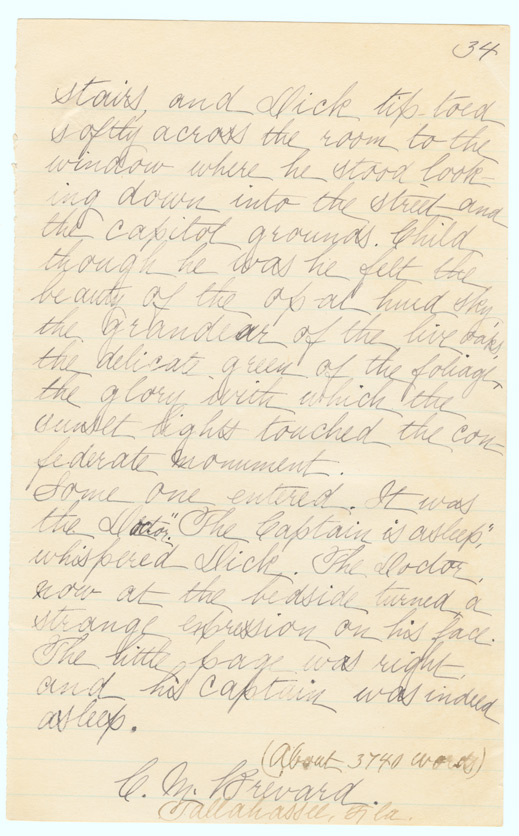 34
stairs, and Dick tip-toed
softly across the room to the
window where he stood look-
ing down into the street and
the capitol grounds. Child
though he was he felt the
beauty of the op-al hued sky
the grandear of the live oaks,
the delicate green of the foliage,
the glory with which the
sunset lights touched the con
federate monument.
Some one entered. It was
the Doctor. "The Captain is asleep",
whispered Dick. The Doctor,
now at the bedside turned, a
strange expression on his face.
The little page was right,
and his captain was indeed
asleep.
(About 3740 words)
C. M. Brevard
Tallahassee, Fla.